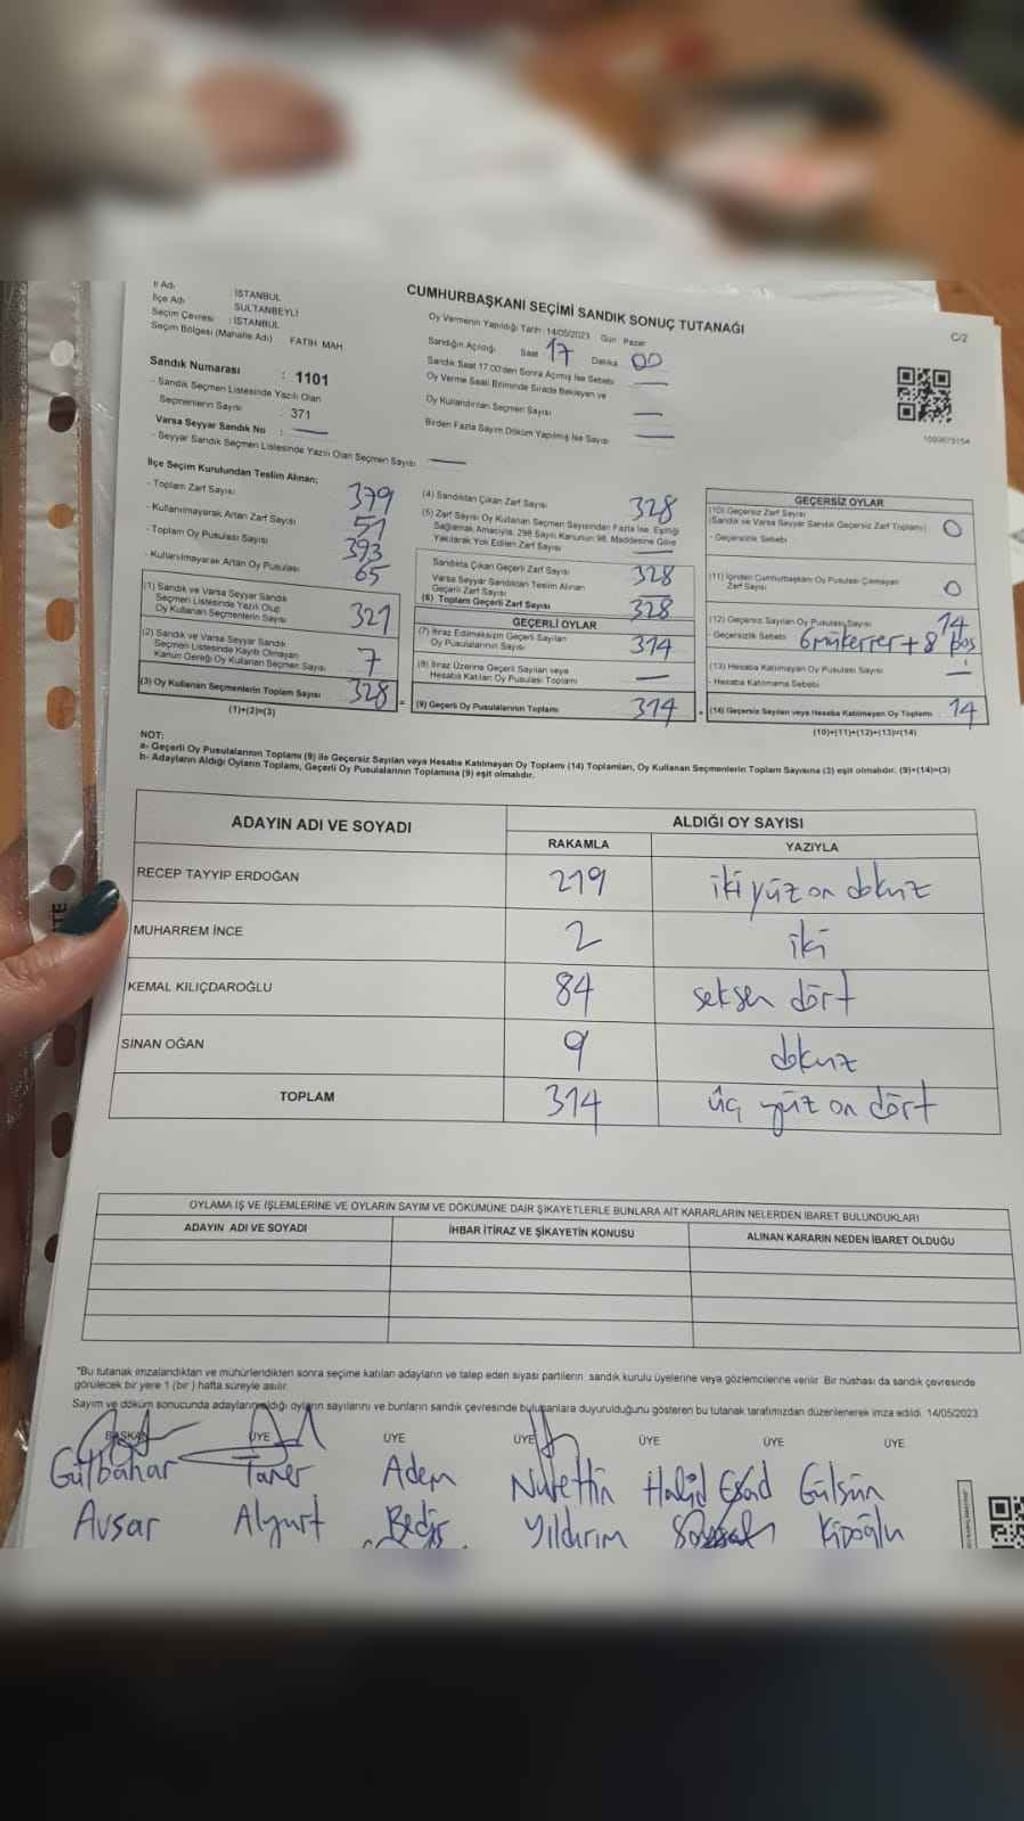 CUMHURBAŞKANI SEÇİMİ SANDIK SONUÇ TUTANAĞI
C/2
İl Adı : İSTANBUL
İlçe Adı SULTANBEYLİ
Seçim Çevresi : İSTANBUL
Seçim Bölgesi (Mahalle Adı) FATİH MAH.
Sandık Numarası : 1101
- Sandık Seçmen Listesinde Yazılı Olan
Seçmenlerin Sayısı 371
Varsa Seyyar Sandık No : —
- Seyyar Sandık Seçmen Listesinde Yazılı Olan Seçmen Sayısı —
Oy Vermenin Yapıldığı Tarih: 14/05/2023 Gün Pazar
Sandığın Açıldığı Saat 17 Dakika 00
Sandık Saat 17.00'den Sonra Açılmış İse Sebebi —
Oy Verme Saati Bitiminde Sırada Bekleyen ve
Oy Kullandırılan Seçmen Sayısı —
Birden Fazla Sayım Döküm Yapılmış İse Sayısı —
İlçe Seçim Kurulundan Teslim Alınan;
- Toplam Zarf Sayısı 379
- Kullanılmayarak Artan Zarf Sayısı 51
- Toplam Oy Pusulası Sayısı 393
- Kullanılmayarak Artan Oy Pusulası 65
(1) Sandık ve Varsa Seyyar Sandık
Seçmen Listesinde Yazılı Olup
Oy Kullanan Seçmenlerin Sayısı 321
(2) Sandık ve Varsa Seyyar Sandık
Seçmen Listesinde Kayıtlı Olmayan
Kanun Gereği Oy Kullanan Seçmen Sayısı 7
(3) Oy Kullanan Seçmenlerin Toplam Sayısı 328
(1)+(2)=(3)
(4) Sandıktan Çıkan Zarf Sayısı 328
(5) Zarf Sayısı Oy Kullanan Seçmen Sayısından Fazla İse, Eşitliği
Sağlamak Amacıyla, 298 Sayılı Kanunun 98. Maddesine Göre
Yakılarak Yok Edilen Zarf Sayısı —
Sandıkta Çıkan Geçerli Zarf Sayısı 328
Varsa Seyyar Sandıktan Teslim Alınan
Geçerli Zarf Sayısı —
(6) Toplam Geçerli Zarf Sayısı 328
GEÇERLİ OYLAR
(7) İtiraz Edilmeksizin Geçerli Sayılan
Oy Pusulalarının Sayısı 314
(8) İtiraz Üzerine Geçerli Sayılan veya
Hesaba Katılan Oy Pusulası Toplamı —
= (9) Geçerli Oy Pusulalarının Toplamı 314
GEÇERSİZ OYLAR
(10) Geçersiz Zarf Sayısı
(Sandık ve Varsa Seyyar Sandık Geçersiz Zarf Toplamı) 0
- Geçersizlik Sebebi
(11) İçinden Cumhurbaşkanı Oy Pusulası Çıkmayan
Zarf Sayısı 0
(12) Geçersiz Sayılan Oy Pusulası Sayısı 14
Geçersizlik Sebebi 6 mükerrer + 8 boş
(13) Hesaba Katılmayan Oy Pusulası Sayısı —
- Hesaba Katılmama Sebebi
+ (14) Geçersiz Sayılan veya Hesaba Katılmayan Oy Toplamı 14
(10)+(11)+(12)+(13)=(14)
NOT:
a- Geçerli Oy Pusulalarının Toplamı (9) ile Geçersiz Sayılan veya Hesaba Katılmayan Oy Toplamı (14) Toplamları, Oy Kullanan Seçmenlerin Toplam Sayısına (3) eşit olmalıdır. (9)+(14)=(3)
b- Adayların Aldığı Oyların Toplamı, Geçerli Oy Pusulalarının Toplamına (9) eşit olmalıdır.
ADAYIN ADI VE SOYADI ALDIĞI OY SAYISI
RAKAMLA YAZIYLA
RECEP TAYYİP ERDOĞAN 219 iki yüz on dokuz
MUHARREM İNCE 2 iki
KEMAL KILIÇDAROĞLU 84 seksen dört
SİNAN OĞAN 9 dokuz
TOPLAM 314 üç yüz on dört
OYLAMA İŞ VE İŞLEMLERİNE VE OYLARIN SAYIM VE DÖKÜMÜNE DAİR ŞİKAYETLERLE BUNLARA AİT KARARLARIN NELERDEN İBARET BULUNDUKLARI
ADAYIN ADI VE SOYADI İHBAR İTİRAZ VE ŞİKAYETİN KONUSU ALINAN KARARIN NEDEN İBARET OLDUĞU
*Bu tutanak imzalandıktan ve mühürlendikten sonra seçime katılan adayların ve talep eden siyasi partilerin, sandık kurulu üyelerine veya gözlemcilerine verilir. Bir nüshası da sandık çevresinde
görülecek bir yere 1 (bir) hafta süreyle asılır.
Sayım ve döküm sonucunda adayların aldığı oyların sayılarını ve bunların sandık çevresinde bulunanlara duyurulduğunu gösteren bu tutanak tarafımızdan düzenlenerek imza edildi. 14/05/2023
BAŞKAN ÜYE ÜYE ÜYE ÜYE ÜYE ÜYE
Gülbahar Taner Adem Nurettin Halid Esad Gülsün
Avşar Alyurt Bediş Yıldırım